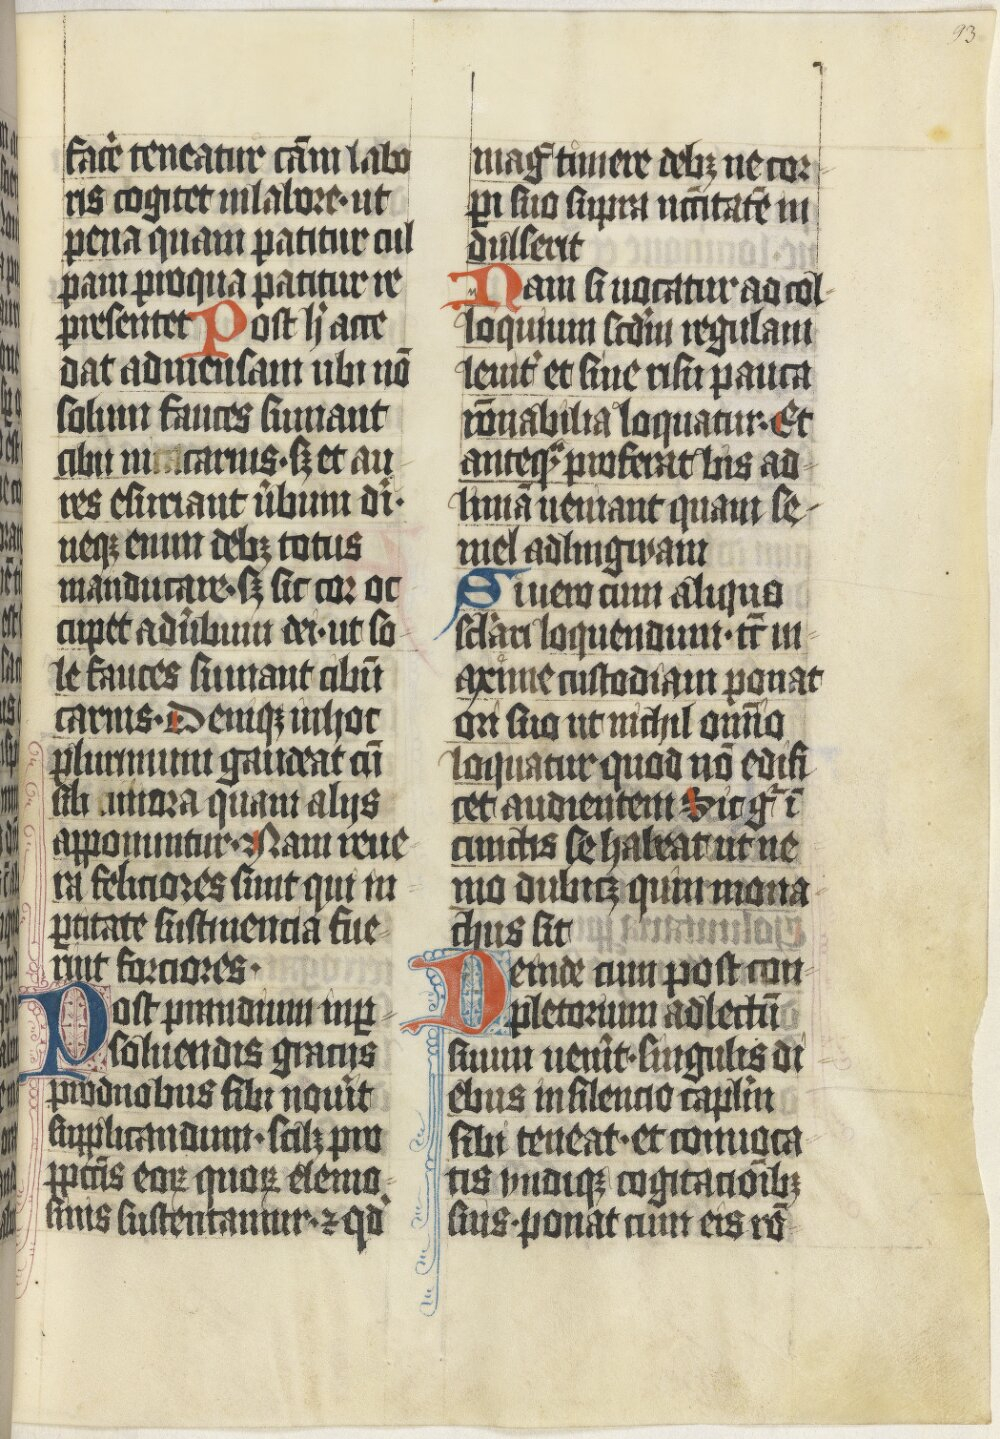 93
facẽ teneatur cãm labo
ris cogitet in labore · ut
pena quam patitur cul
pam pro qua patitur re
presentet Post h̃ acce
dat ad mensam ubi nõ
solum fauces sumant
cibũ carnis · sꝫ et au
res esuriant ũbum dĩ ·
neqꝫ enim debꝫ totus
manducare · sꝫ sic cor oc
cupet ad ũbum dei · ut so
le fauces sumant cibũ
carnis · Deniqꝫ in hoc
plurimum gaudeat cũ
sibi minora quam alijs
apponuntur · Nam reue
ra feliciores sunt qui in
ꝑcitate sustinencia fue
rint forciores ·
Post prandium in ꝑ
soluendis gracijs
pro duobus sibi nouĩt
supplicandum · scilꝫ pro
ꝑpctĩs eoꝝ quoꝝ elemo
sinis sustentamur · ⁊ qd̾
mag̃ timere debꝫ ne cor
pi suo supra nc̃citatẽ in
dulserit
Nam si uocatur ad col
loquium scd̃m regulam
leuit̾ et sine risu pauca
rõnabilia loquatur · Et
anteqᷓ proferat bis ad
limã ueniant quam se
mel ad lingwam
Si uero cum aliquo
sclãri loquendum · tc̃ m
axime custodiam ponat
ori suo ut nichil om̃no
loquatur quod nõ edifi
cet audientem Sic gͦ ĩ
cunctis se habeat ut ne
mo dubitꝫ quin mona
chus sit
Deinde cum post con
pletorium ad lectũ
suum uenĩt · singulis di
ebus in silencio caplm̃
sibi teneat · et conuoca
tis undiqꝫ cogitacioĩbꝫ
suis · ponat cum eis rõ